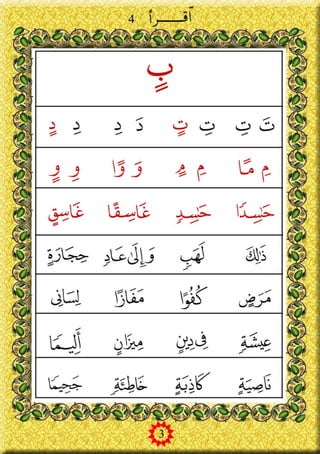 4 ٱقرأ
بٍ
تَ تِ تِ تٍ دَ دِ دِ دٍ
مِ مًا مِ مٍ وَ وًا وِ وٍ
حَٰسِدًا حَٰسِدٍ غَاسِقًا غَاسِقٍ
ذَٰلِكَ لَهَبٍ وَإِلَىٰ عَادٍ حِجَارَةٍ
مَرَضٍ كُفُوًا مَفَازًا لِسَانِى
عِيشَةٍ فِى دِينٍ مِيزَانٍ أَلِيمًا
نَاصِيَةٍ كَاذِبَةٍ خَاطِئَةٍ جَحِيمًا
3